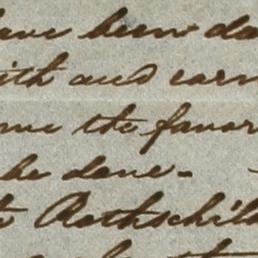 have been da
ith and earn
me the favor
he done -
to Rothschild